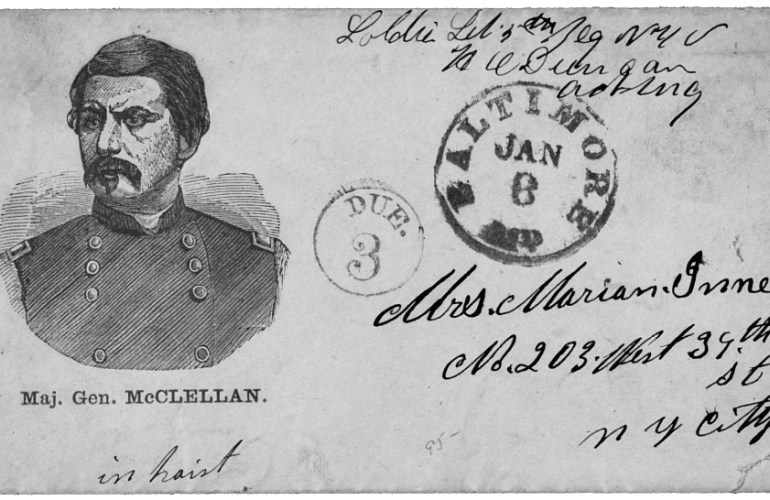 Soldie Let. 5th Reg N Y V
W C Dungan
acting
BALTIMORE
JAN
8
MD
DUE.
3
Mrs. Marian. Inne
No. 203. West 39.th
st
N Y City
Maj. Gen. McCLELLAN.
in haist
95-